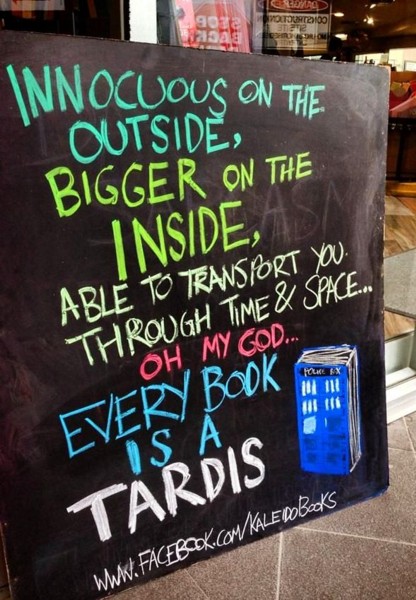 DANGER
CONSTRUCTION
SITE
STOP
INNOCUOUS ON THE
OUTSIDE,
BIGGER ON THE
INSIDE,
ABLE TO TRANSPORT YOU
THROUGH TIME & SPACE...
OH MY GOD...
EVERY BOOK
IS A
TARDIS
POLICE BOX
WWW.FACEBOOK.COM/KALEIDOBOOKS